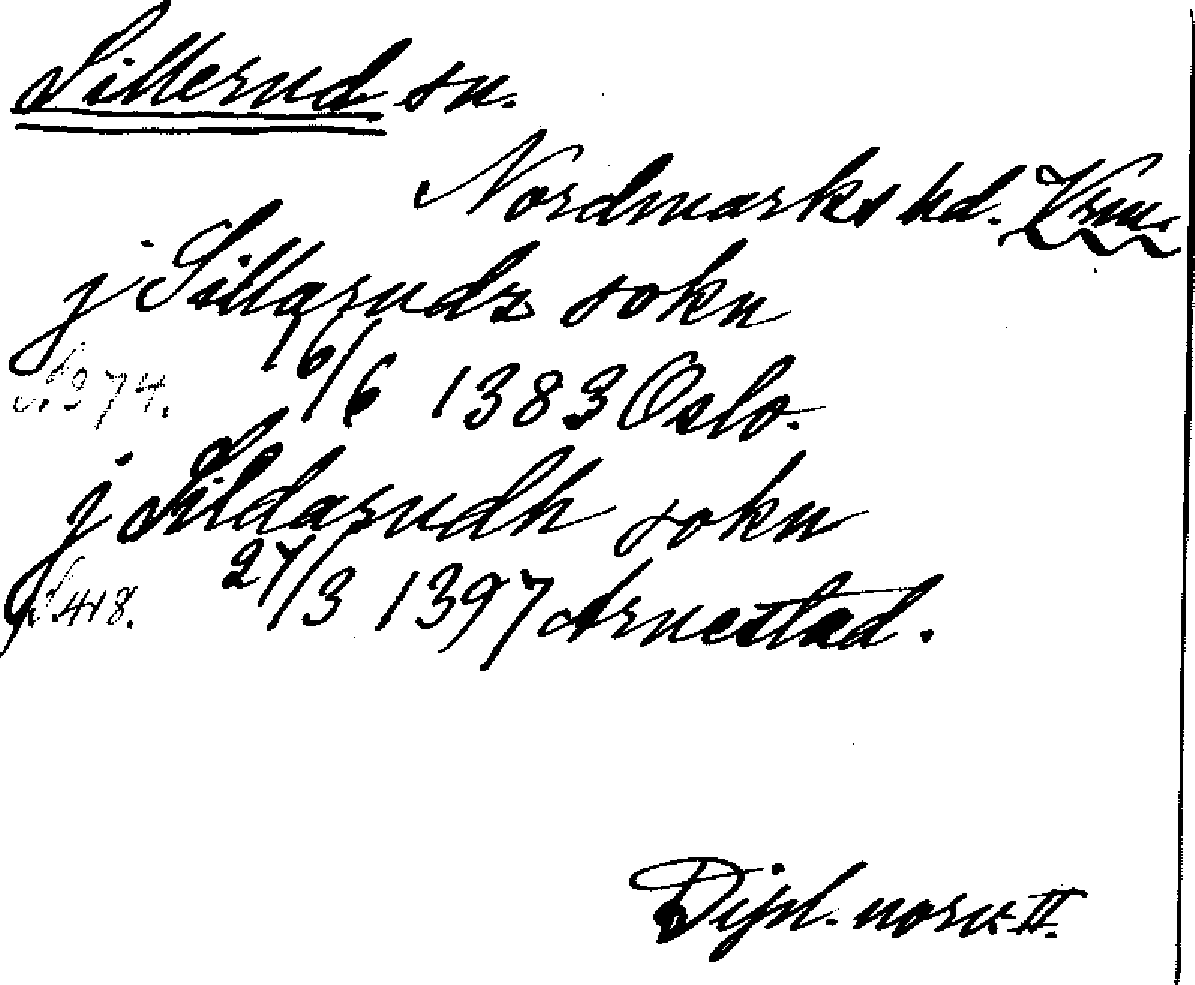 Sillerud sn.
Nordmarks hd. Vrm.
j Sillarudz sokn
S. 374. 16/6 1383 Oslo.
j Sildarudh sokn
S. 418. 27/3 1397 Arnestad.
Dipl. norv. II.